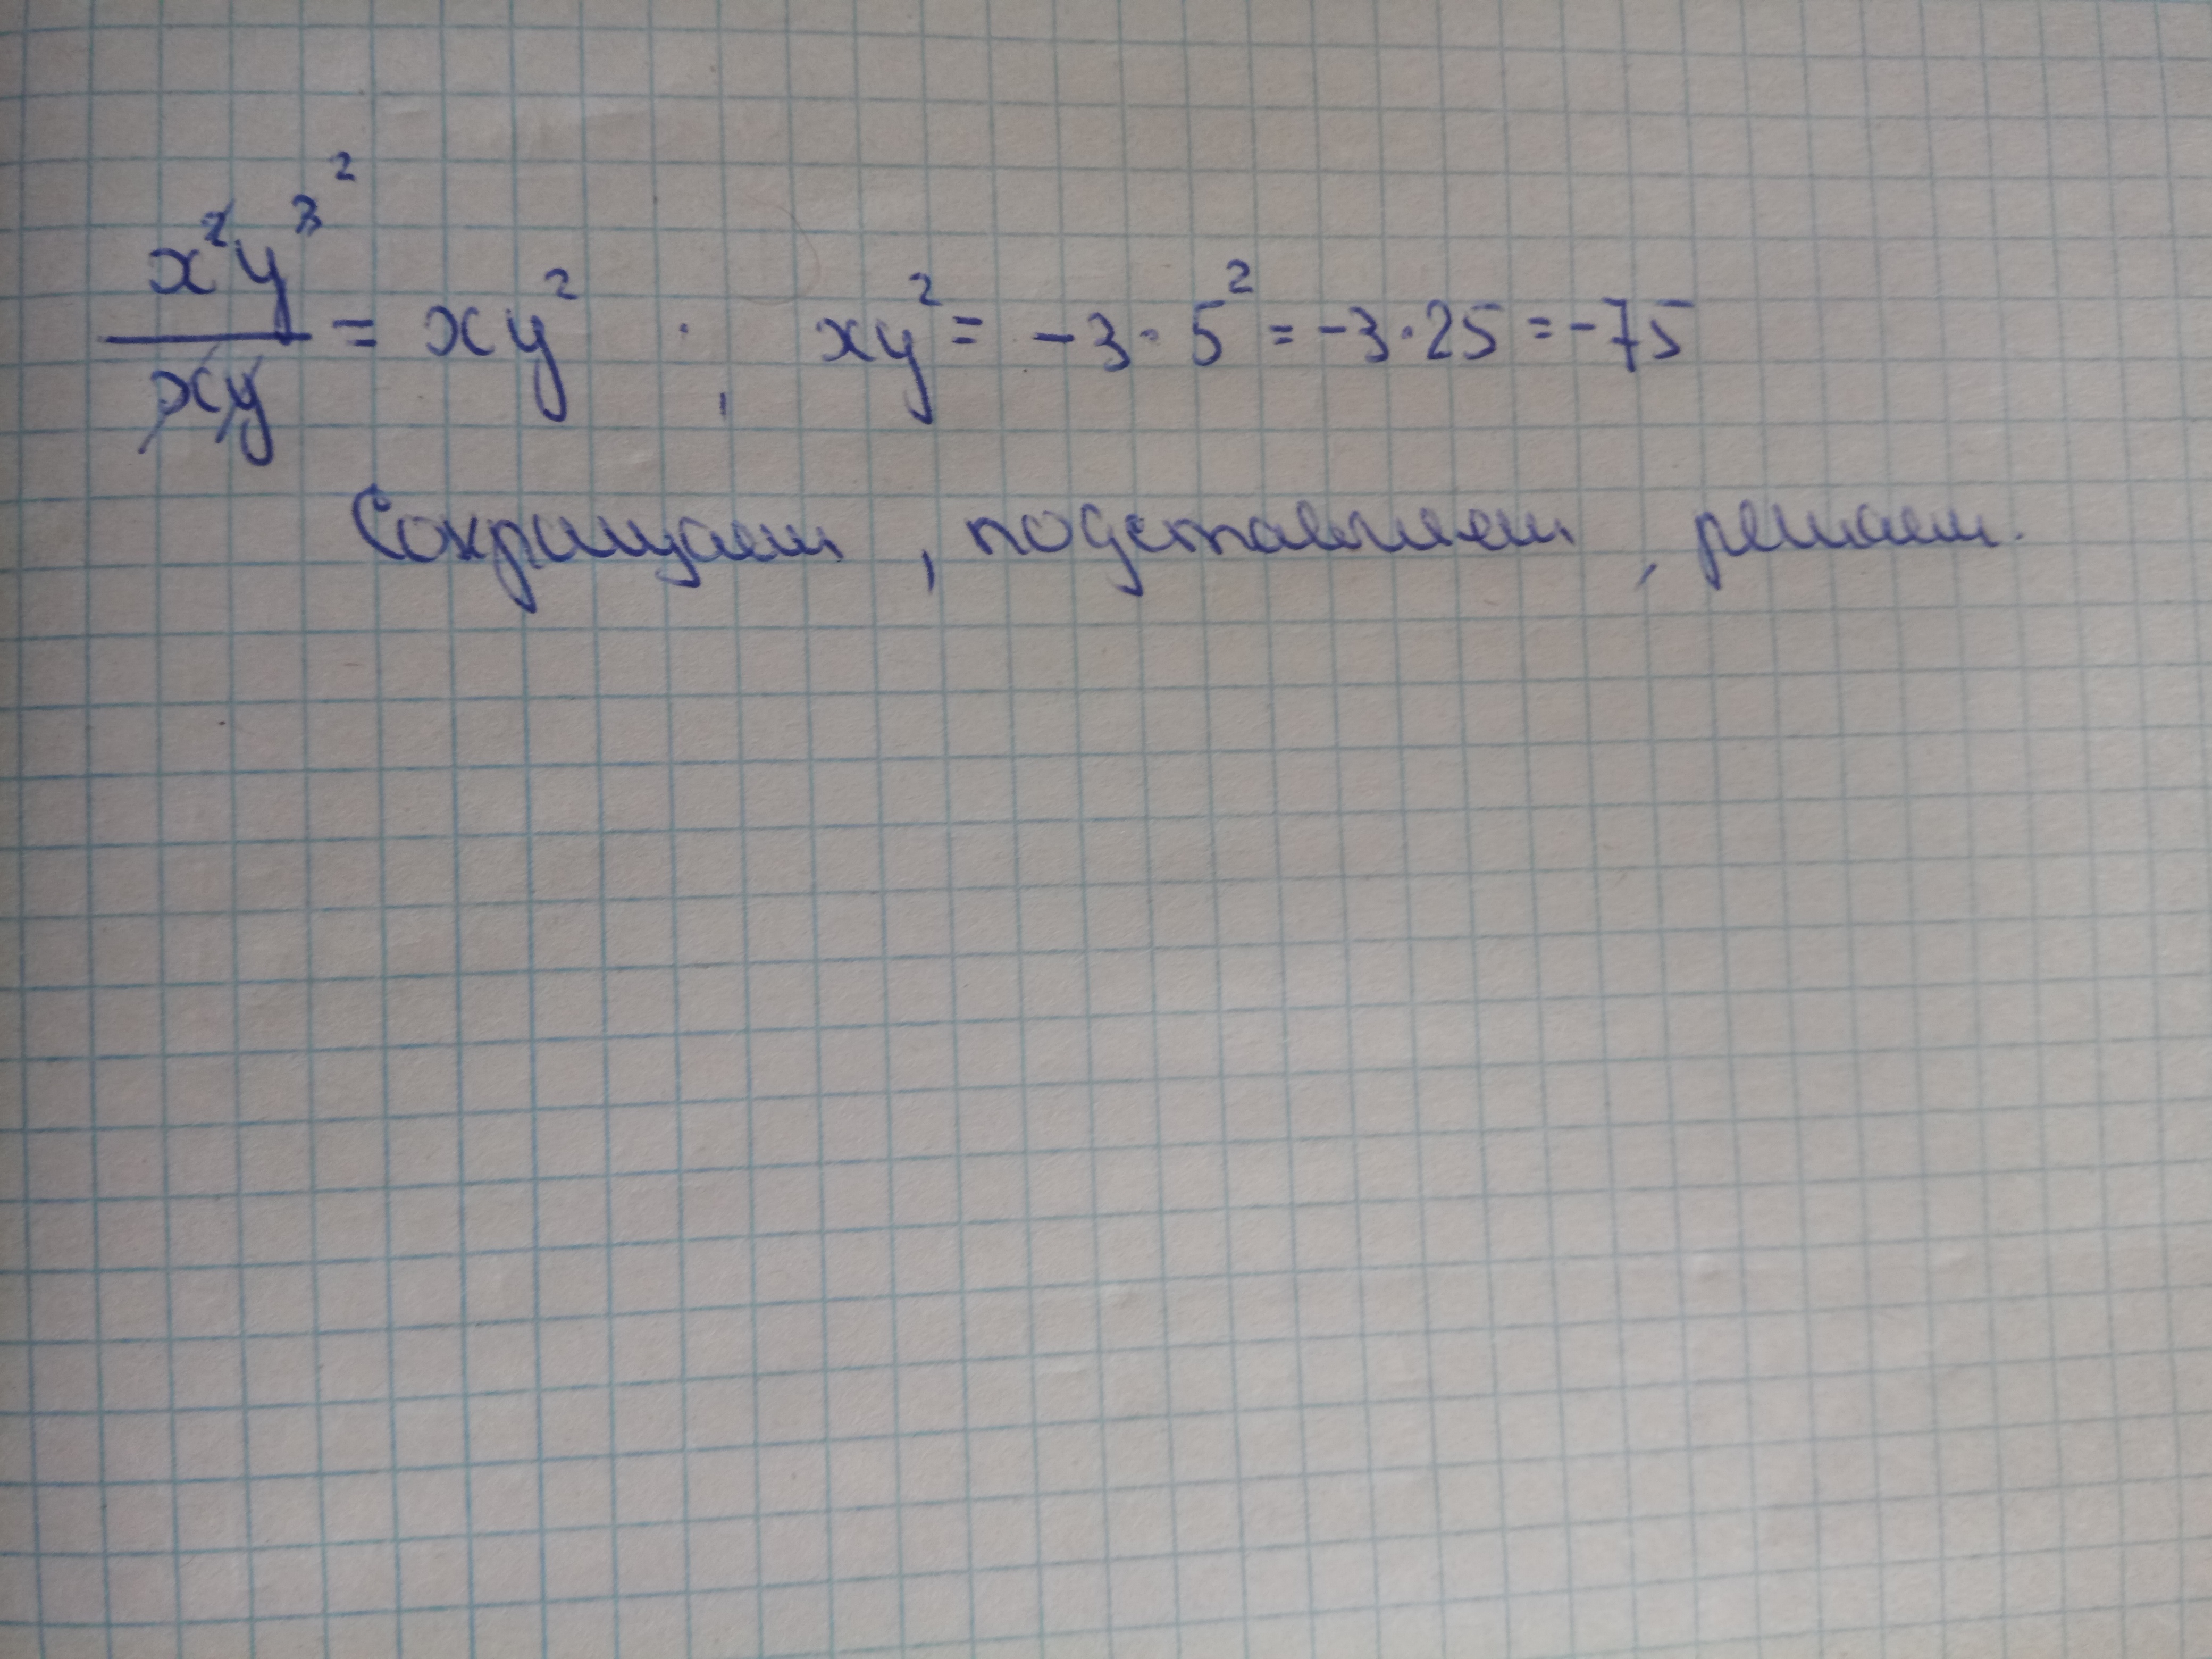 x²y³ ² / xy = xy² ; xy² = -3 · 5² = -3 · 25 = -75
Сокращаем, подставляем, решаем.